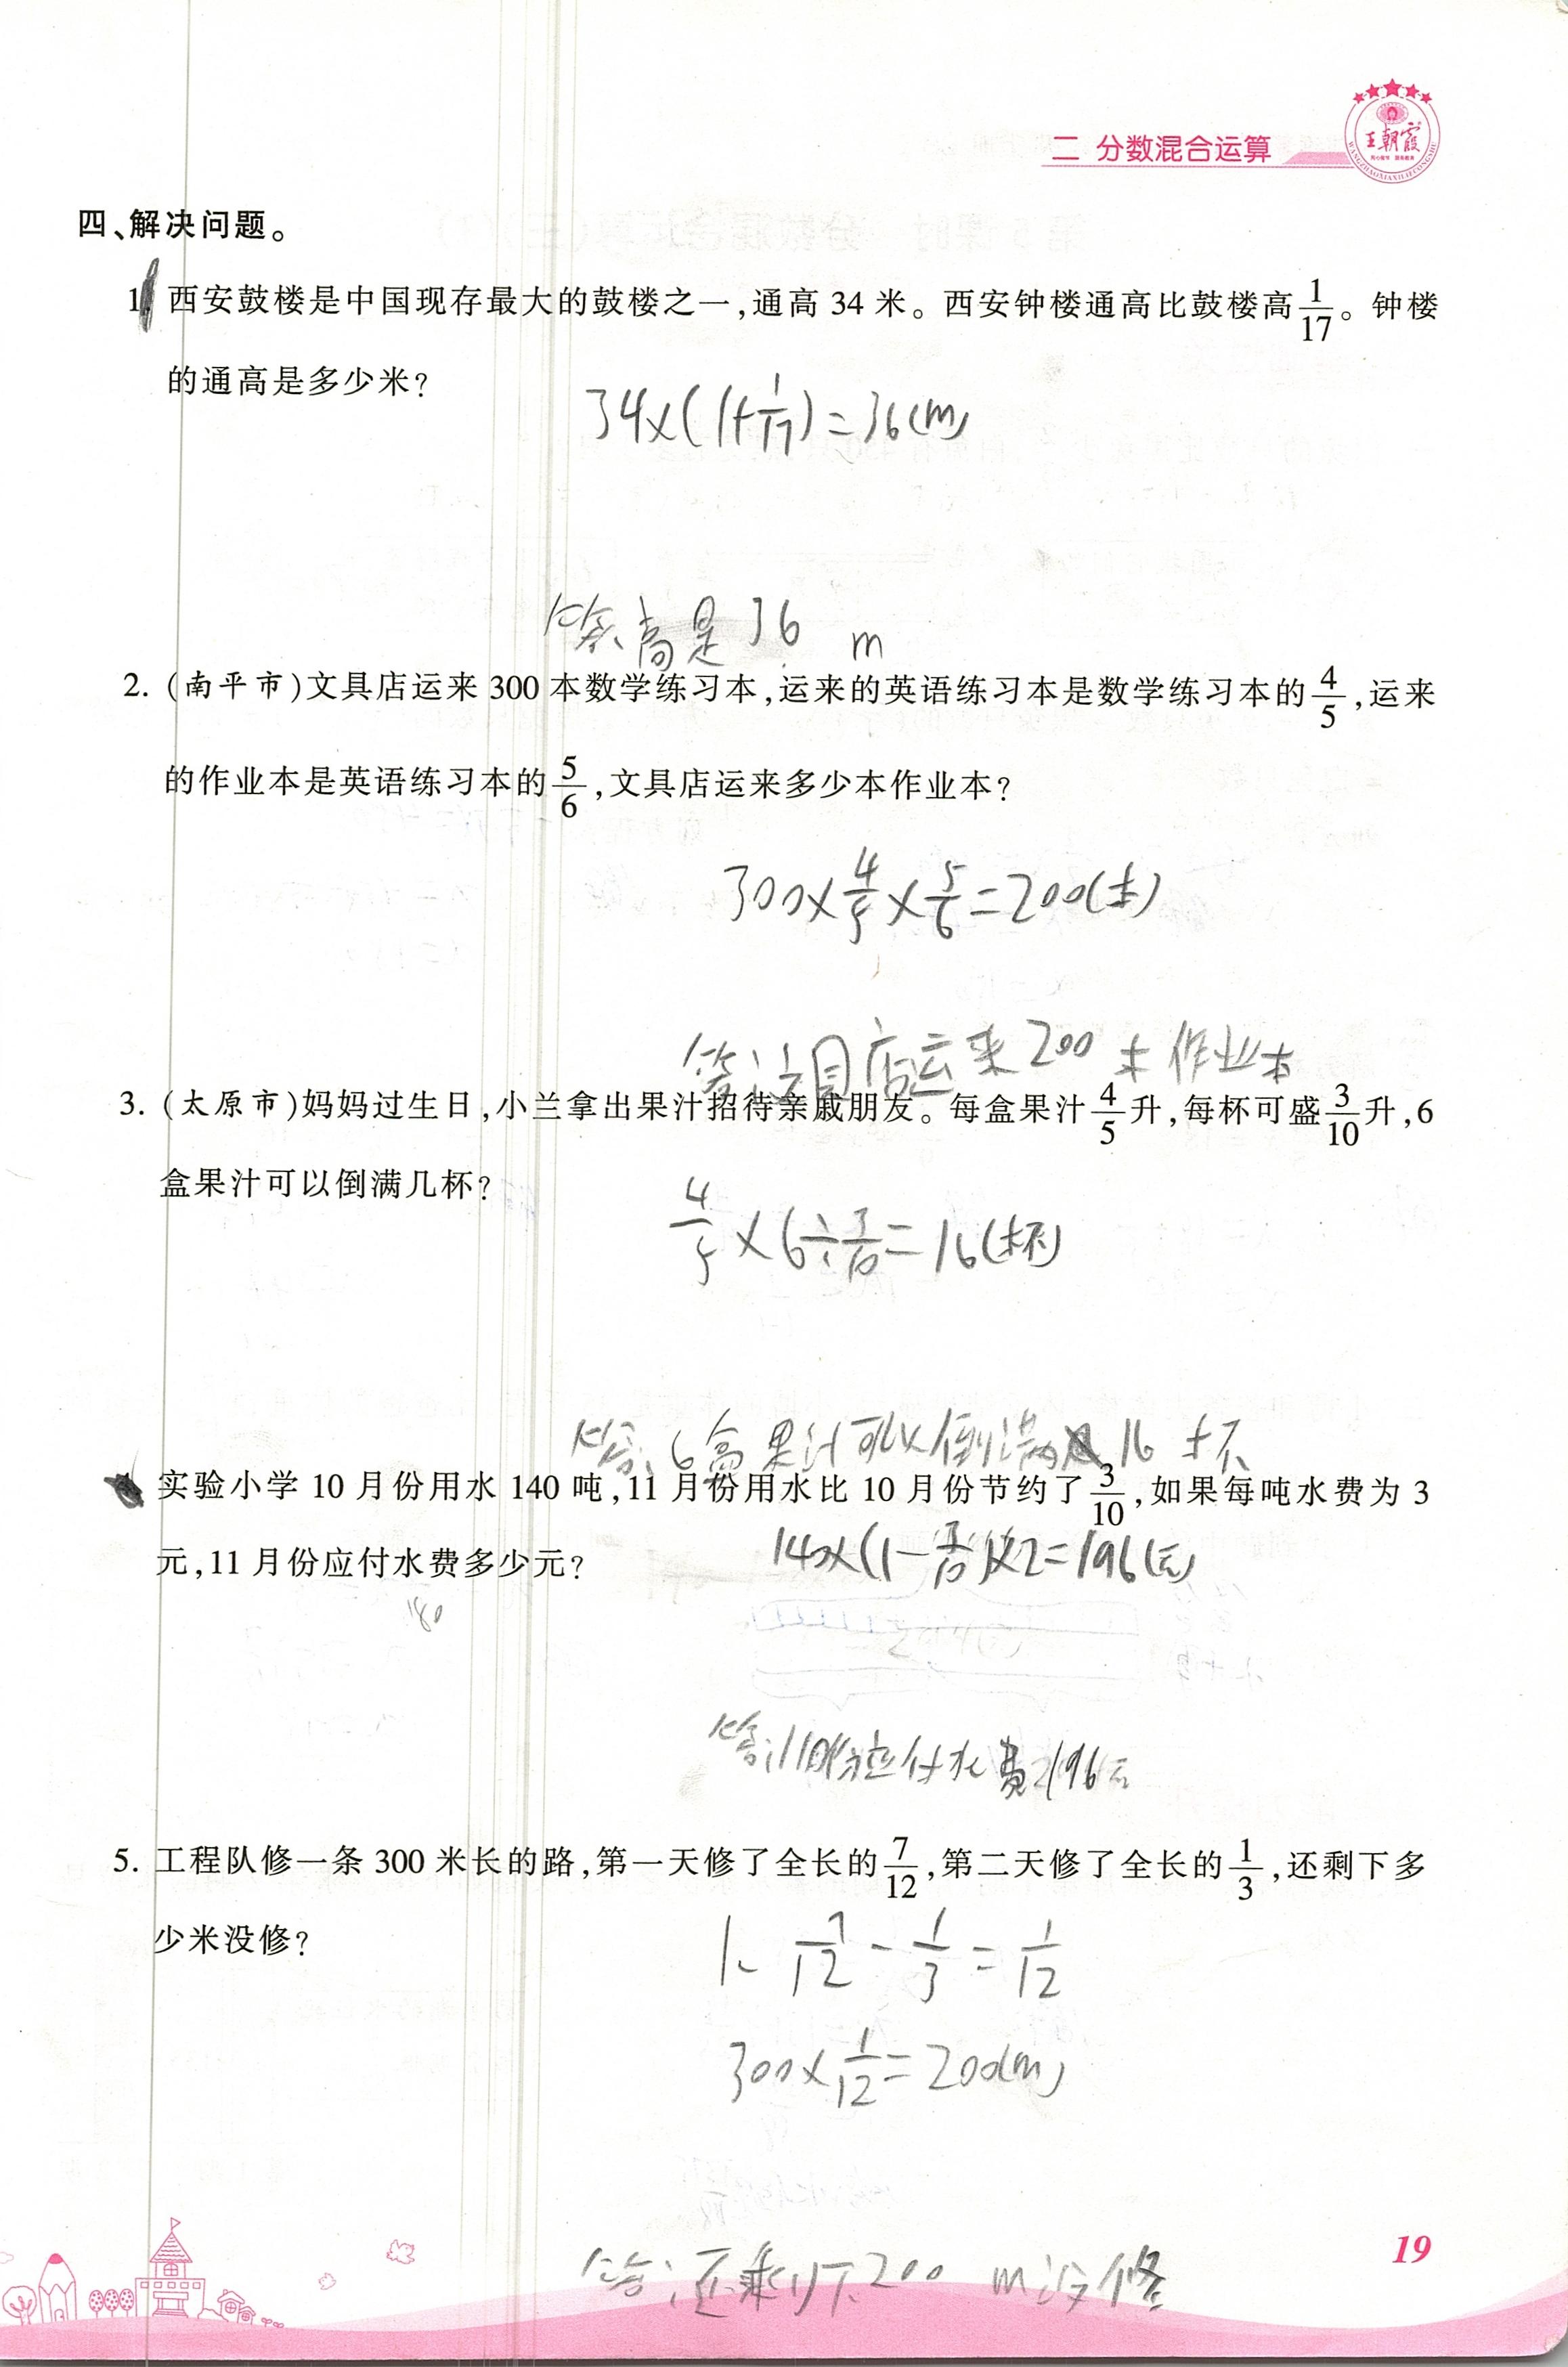 二 分数混合运算
王朝霞
四、解决问题。
1. 西安鼓楼是中国现存最大的鼓楼之一,通高 34 米。西安钟楼通高比鼓楼高1/17。钟楼
的通高是多少米?
34×(1+1/17)=36(m)
答:高是36 m
2. (南平市)文具店运来 300 本数学练习本,运来的英语练习本是数学练习本的4/5,运来
的作业本是英语练习本的5/6,文具店运来多少本作业本?
300×4/5×5/6=200(本)
答:文具店运来200本作业本
3. (太原市)妈妈过生日,小兰拿出果汁招待亲戚朋友。每盒果汁4/5升,每杯可盛3/10升,6
盒果汁可以倒满几杯?
4/5×6÷3/10=16(杯)
答:6盒果汁可以倒满16杯
实验小学 10 月份用水 140 吨,11 月份用水比 10 月份节约了3/10,如果每吨水费为 3
元,11 月份应付水费多少元?
140×(1-3/10)×2=196(元)
180
答:11月份应付水费196元
5. 工程队修一条 300 米长的路,第一天修了全长的7/12,第二天修了全长的1/3,还剩下多
少米没修?
1-7/12-1/3=1/12
300×1/12=200(m)
答:还剩下200 m没修
19